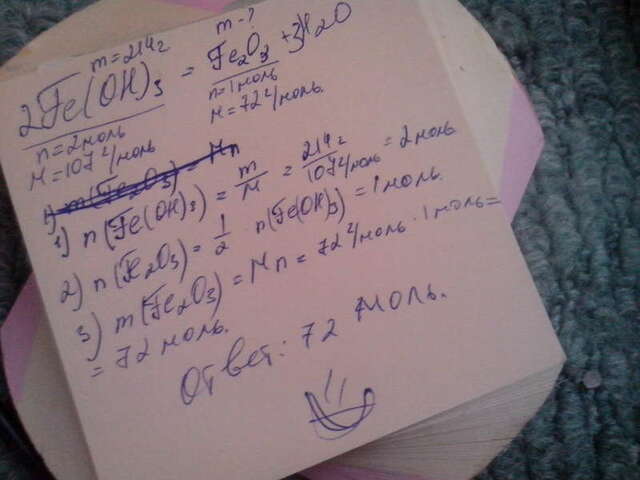 m=214г
m-?
2Fe(OH)3 = Fe2O3 + 3H2O
n=2моль
n=1моль
M=107г/моль
M=72г/моль.
1) m(Fe2O3) = Mn
1) n(Fe(OH)3) = m/M = 214г/107г/моль = 2 моль
2) n(Fe2O3) = 1/2 n(Fe(OH)3) = 1 моль.
3) m(Fe2O3) = Mn = 72г/моль · 1 моль =
= 72 моль.
Ответ: 72 моль.